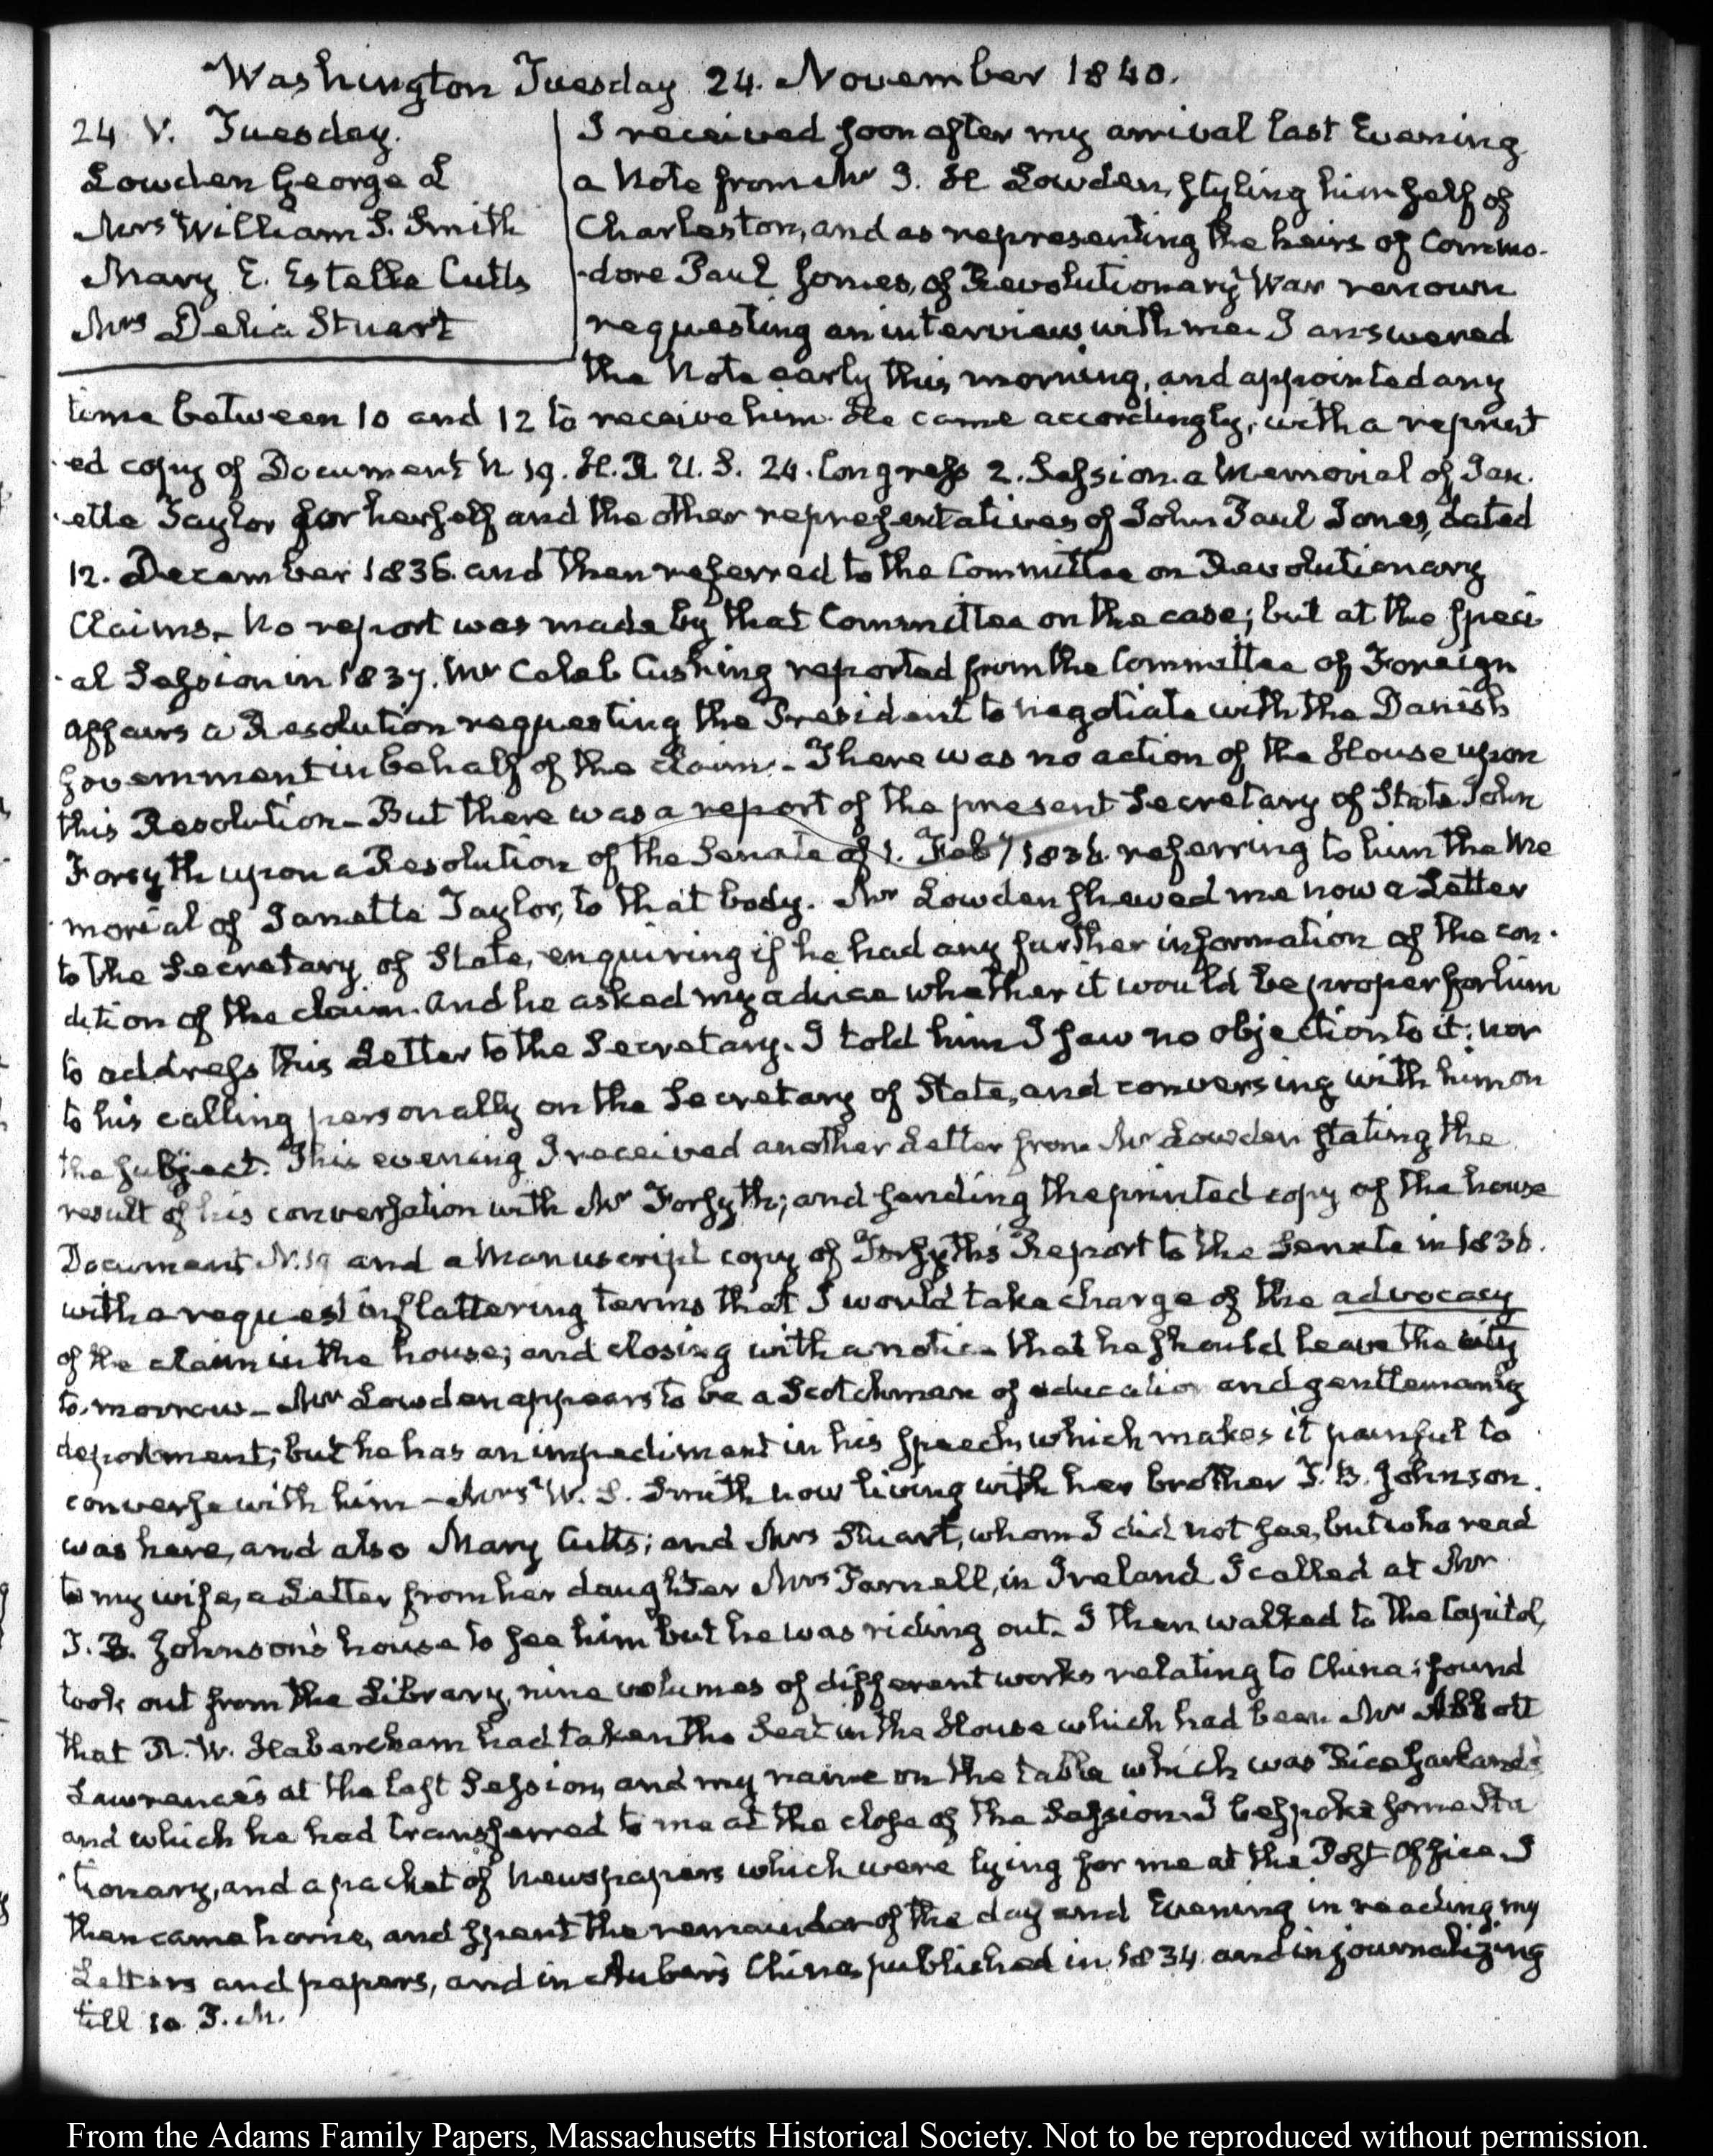 Washington Tuesday 24. November 1840.
24 V. Tuesday.
Lowden George L
Mrs William S. Smith
Mary E. Estelle Cutts
Mrs Delia Stuart
I received soon after my arrival last Evening
a Note from Mr G. L Lowden, styling himself of
Charleston, and as representing the heirs of Commo-
-dore Paul Jones, of Revolutionary War renown
requesting an interview with me. I answered
the Note early this morning, and appointed any
time between 10 and 12 to receive him. He came accordingly, with a reprint
-ed copy of Document N 19. H. R U. S. 24. Congress 2. Session. a Memorial of Jan-
-ette Taylor for herself and the other representatives of John Paul Jones, dated
12. December 1836. and then referred to the Committee on Revolutionary
Claims. No report was made by that Committee on the case; but at the speci
-al Session in 1837. Mr Caleb Cushing reported from the Committee of Foreign
Affairs a Resolution requesting the President to negotiate with the Danish
Government in behalf of the claim. There was no action of the House upon
this Resolution. But there was a report of the present Secretary of State John
Forsyth upon a Resolution of the Senate of 1. Feby 1836. referring to him the Me
-morial of Janette Taylor, to that body. Mr Lowden shewed me now a Letter
to the Secretary of State, enquiring if he had any further information of the con-
dition of the claim. and he asked my advice whether it would be proper for him
to address this Letter to the Secretary. I told him I saw no objection to it: nor
to his calling personally on the Secretary of State, and conversing with him on
the subject. This evening I received another Letter from Mr Lowden stating the
result of his conversation with Mr Forsyth; and sending the printed copy of the house
Document N. 19 and a Manuscript copy of Forsyth's Report to the Senate in 1836.
with a request in flattering terms that I would take charge of the advocacy
of the claim in the house; and closing with a notice that he should leave the city
to-morrow. Mr Lowden appears to be a Scotchman of education and gentlemanly
deportment; but he has an impediment in his speech, which makes it painful to
converse with him. Mrs W. S. Smith now living with her brother T. B. Johnson.
was here, and also Mary Cutts; and Mrs Stuart, whom I did not see, but who read
to my wife, a Letter from her daughter Mrs Parnell, in Ireland I called at Mr
T. B. Johnson's house to see him but he was riding out. I then walked to the Capitol,
took out from the Library, nine volumes of different works relating to China; found
that R. W. Habersham had taken the Seat in the House which had been Mr Abbott
Lawrence's at the last Session, and my name on the table which was Rice Garland's
and which he had transferred to me at the close of the Session. I bespoke some Sta
-tionary, and a packet of Newspapers which were lying for me at the Post Office. I
then came home, and spent the remainder of the day and Evening in reading my
Letters and papers, and in Auber's China, published in 1834. and in journalizing
till 10 P.M.
From the Adams Family Papers, Massachusetts Historical Society. Not to be reproduced without permission.